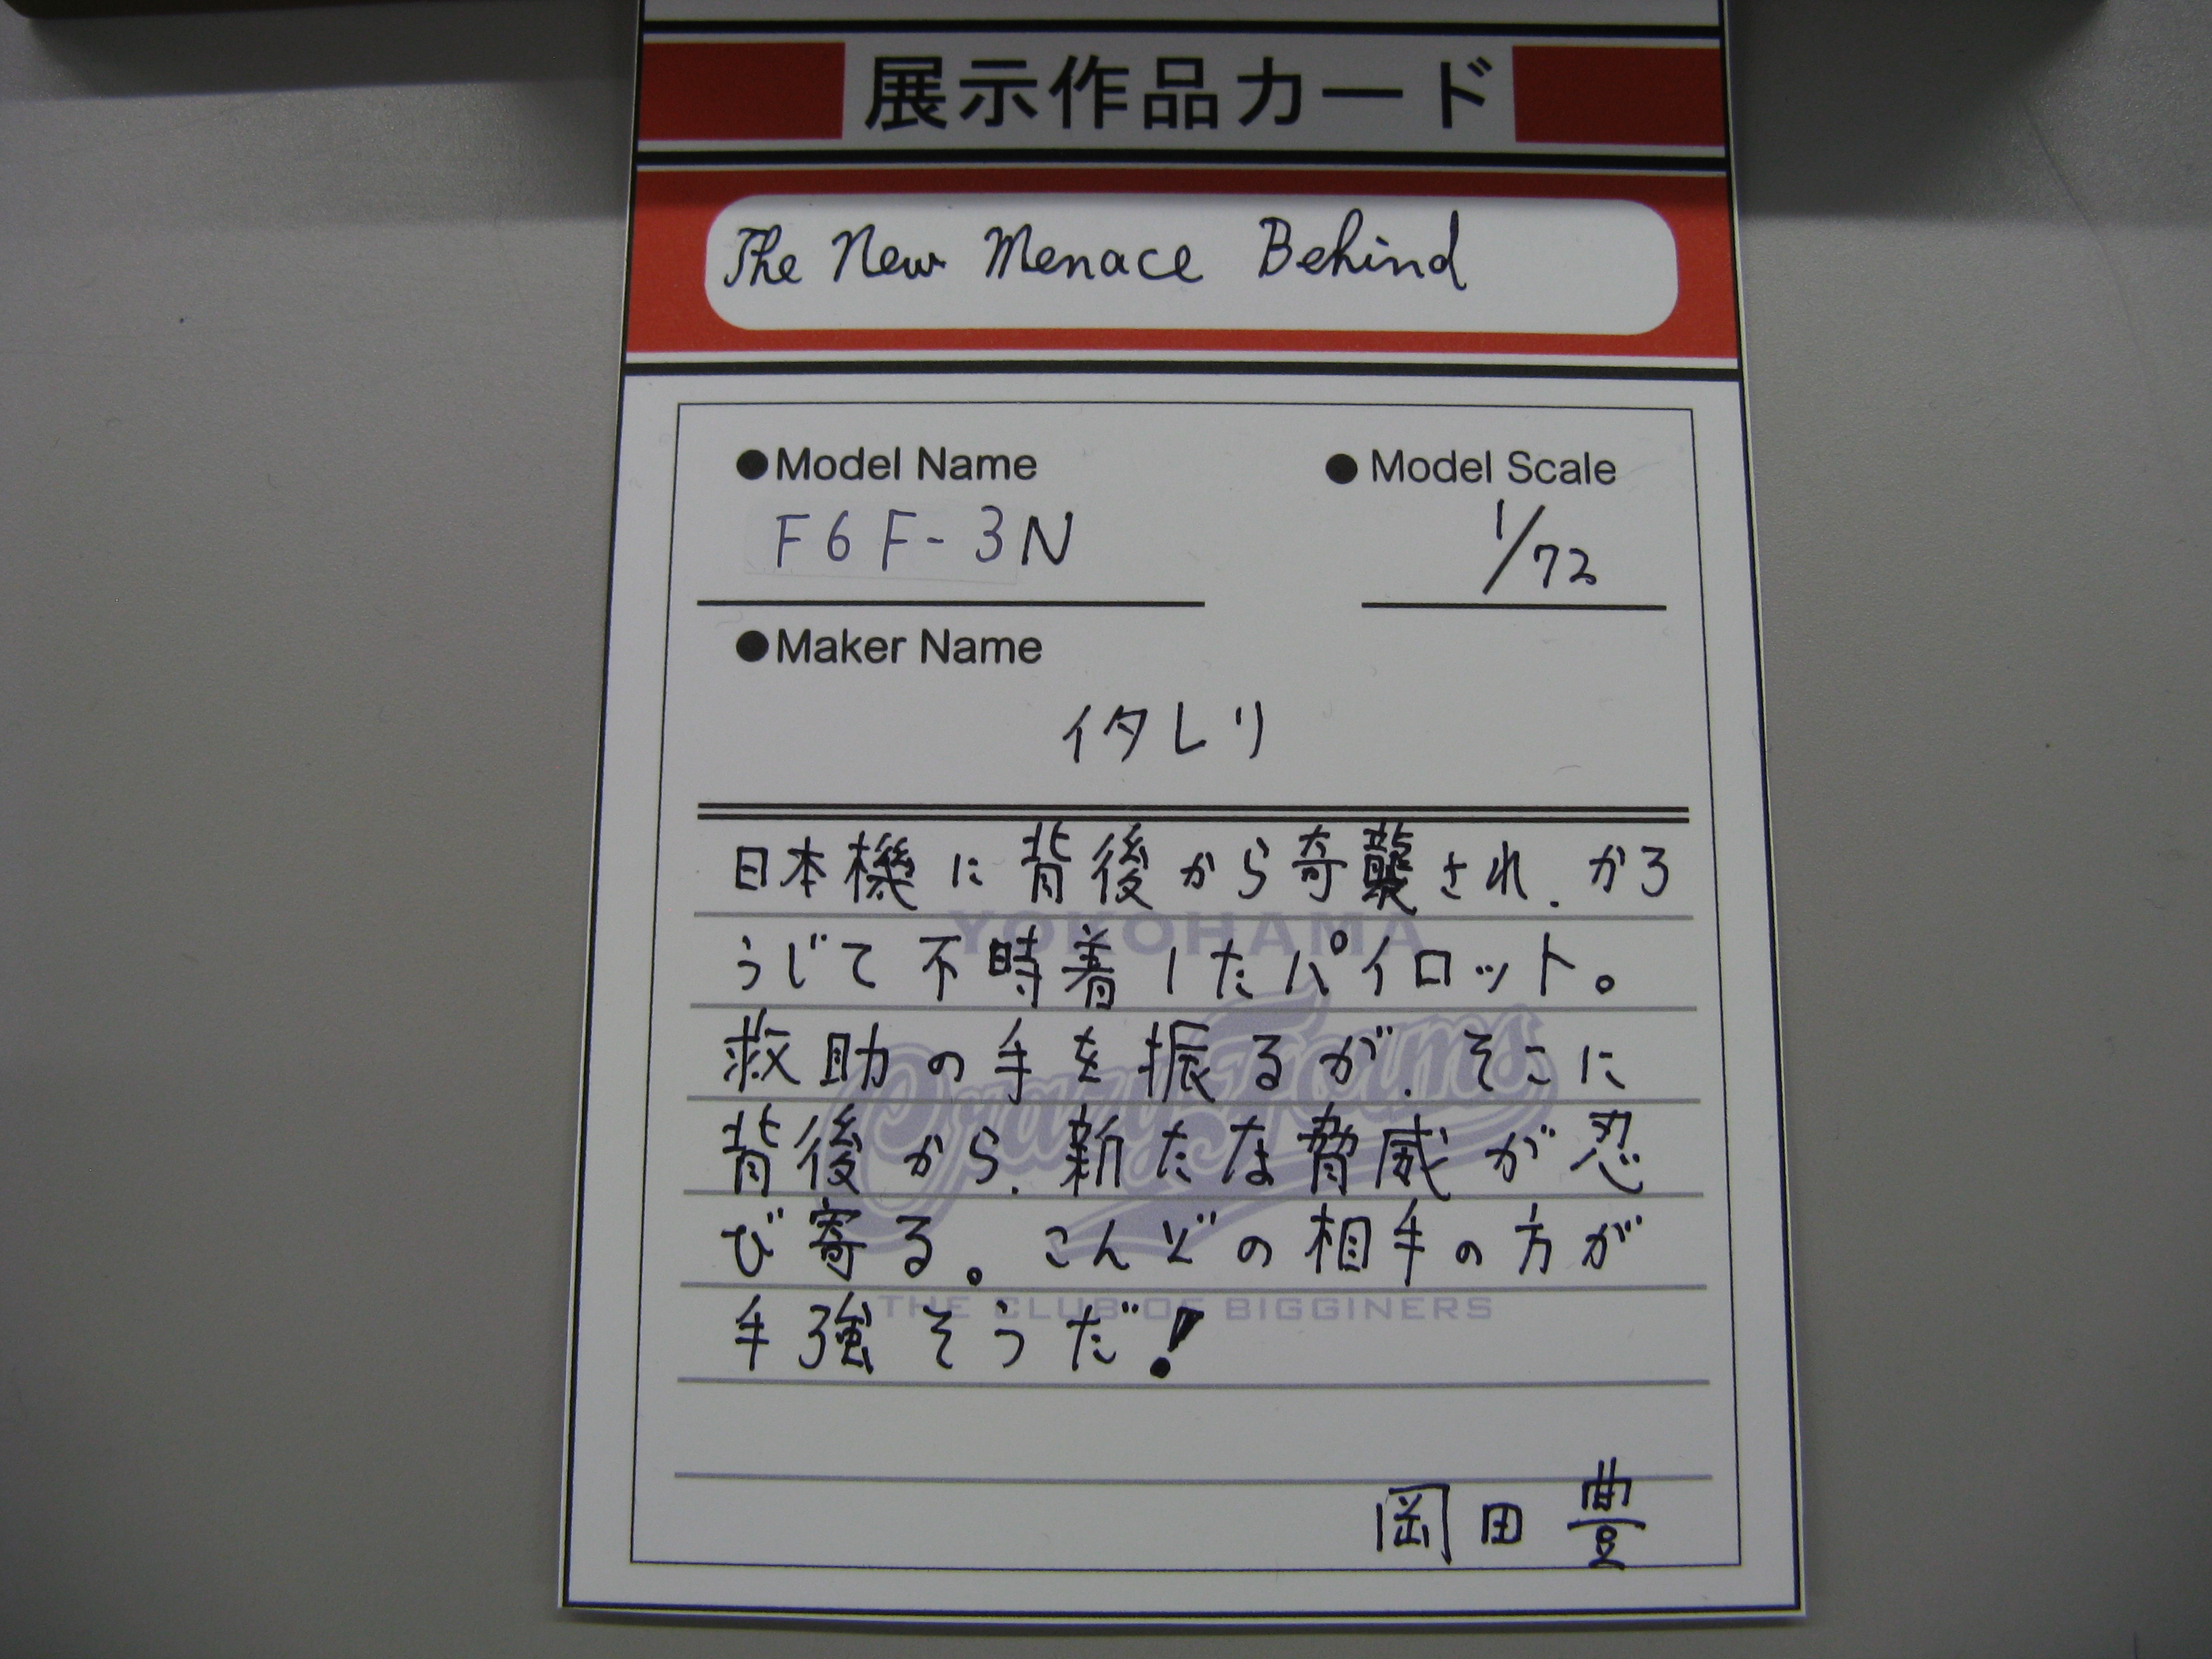 展示作品カード
The New Menace Behind
●Model Name ● Model Scale
F6F-3N 1/72
●Maker Name
イタレリ
日本機に背後から奇襲され、かろ
うじて不時着したパイロット。
救助の手を振るが、そこに
背後から、新たな脅威が忍
び寄る。こんどの相手の方が
手強そうだ!
岡田豊
YOKOHAMA
CrazyFoams
THE CLUB OF BIGGINERS